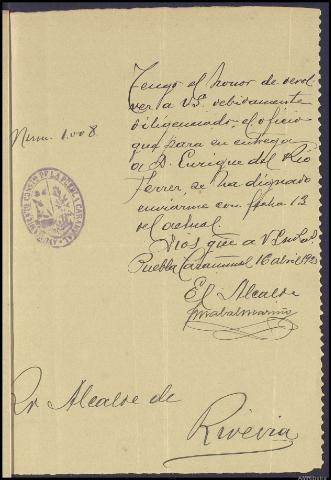 Tengo el honor de devol
ver a V.S. debidamente
diligenciado el oficio
que para su entrega
a D. Enrique del Río
Ferrer, se ha dignado
enviarme con fecha 13
del actual.
Dios gue a V.S. m. a.
Puebla Caramiñal 16 abril
El Alcalde
Num. 1.008
Sr Alcalde de
Riveira